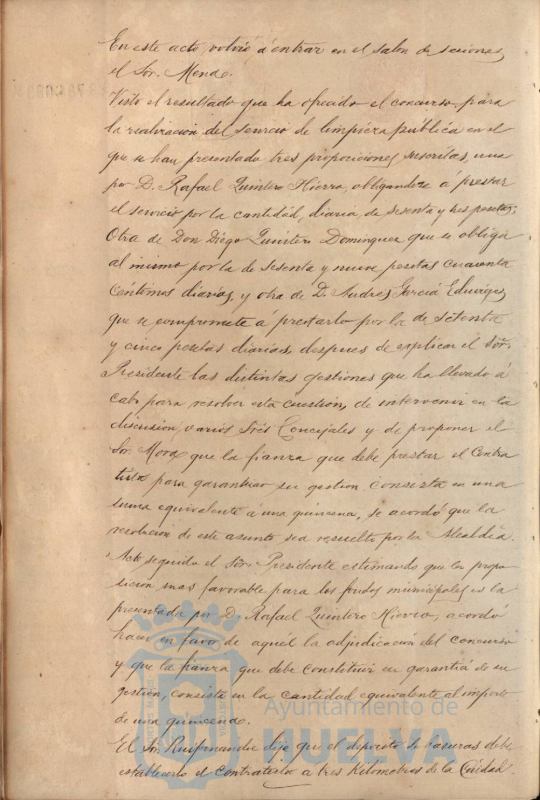 En este acto, volvió á entrar en el salon de sesiones,
el Sor. Mendo.
Visto el resultado que ha ofrecido el concurso para
la realizacion del servicio de limpieza pública en el
que se han presentado tres proposiciones suscritas, una
por D. Rafael Quintero Hierro, obligandose á prestar
el servicio por la cantidad diaria de sesenta y tres pesetas;
Otra de Don Diego Quintero Dominguez que se obliga
al mismo por la de sesenta y nueve pesetas cuarenta
céntimos diarias, y otra de D. Andrés Garcia Eduviges,
que se compromete á prestarlo por la de setenta
y cinco pesetas diarias, despues de explicar el Sor.
Presidente las distintas gestiones que ha llevado á
cabo para resolver esta cuestión, de intervenir en la
discusion, varios Sres Concejales y de proponer el
Sr. Mora que la fianza que debe prestar el Contra
tista para garantizar su gestion consista en una
suma equivalente a una quincena, se acordó que la
resolucion de este asunto sea resuelto por la Alcaldía.
Acto seguido el Sor. Presidente estimando que la propo
sicion mas favorable para los fondos municipales es la
presentada por D. Rafael Quintero Hierro, acordó
hacer en favor de aquél la adjudicación del concurso
y que la fianza que debe constituir en garantía de su
gestión, consiste en la cantidad equivalente al importe
de una quincena.
El Sr. dijo que el deposito de basuras debe
establecerlo el contratista a tres Kilometros de la Ciudad
Ayuntamiento de
HUELVA